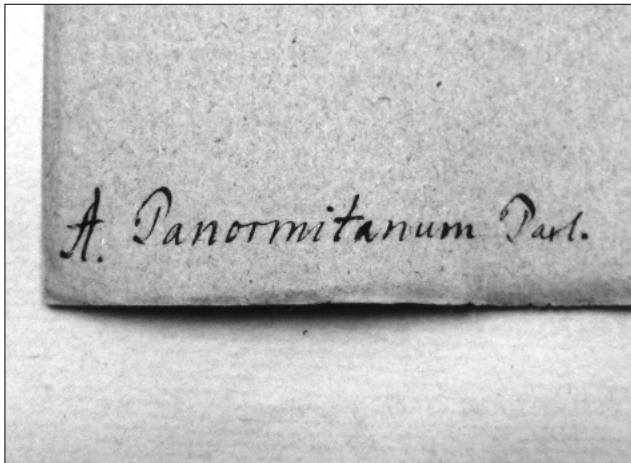 A. Panormitanum Parl.